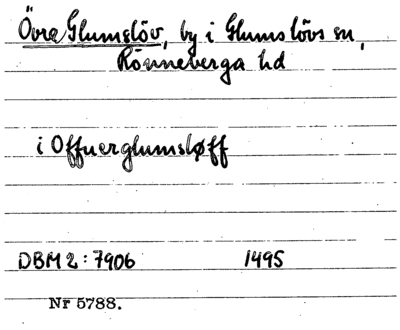 Övra Glumslöv, by i Glumslövs sn,
Rönneberga hd
i Offuerglumsløff
DBM 2: 7906 1495
Nr 5788.